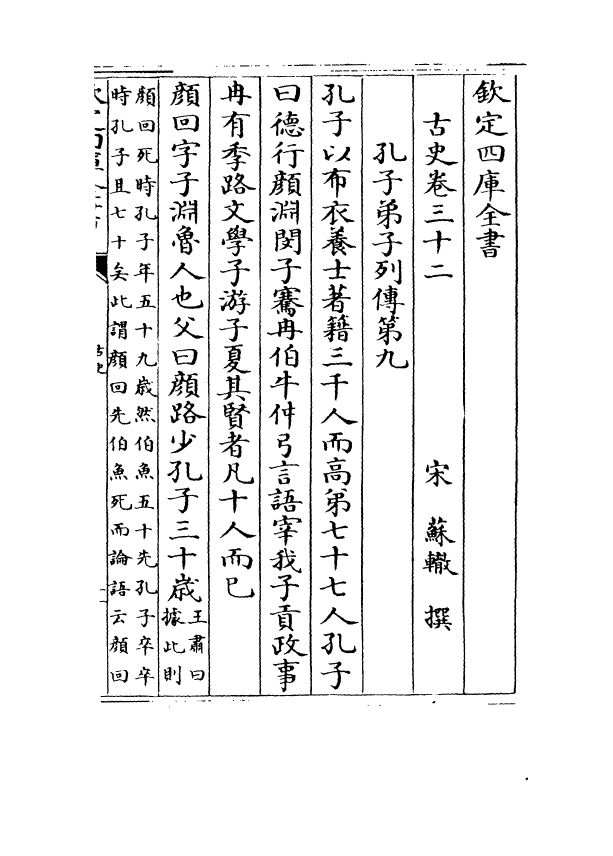 欽定四庫全書
古史卷三十二　宋　蘇轍　撰
孔子弟子列傳第九
孔子以布衣養士著籍三千人而高第七十七人孔子
曰德行顏淵閔子騫冉伯牛仲弓言語宰我子貢政事
冉有季路文學子游子夏其賢者凡十人而已
顏回字子淵魯人也父曰顏路少孔子三十歲
王肅曰
據此則
顏回死時孔子年五十九歲然伯魚五十先孔子卒卒
時孔子且七十矣此謂顏回先伯魚死而論語云顏回
古史